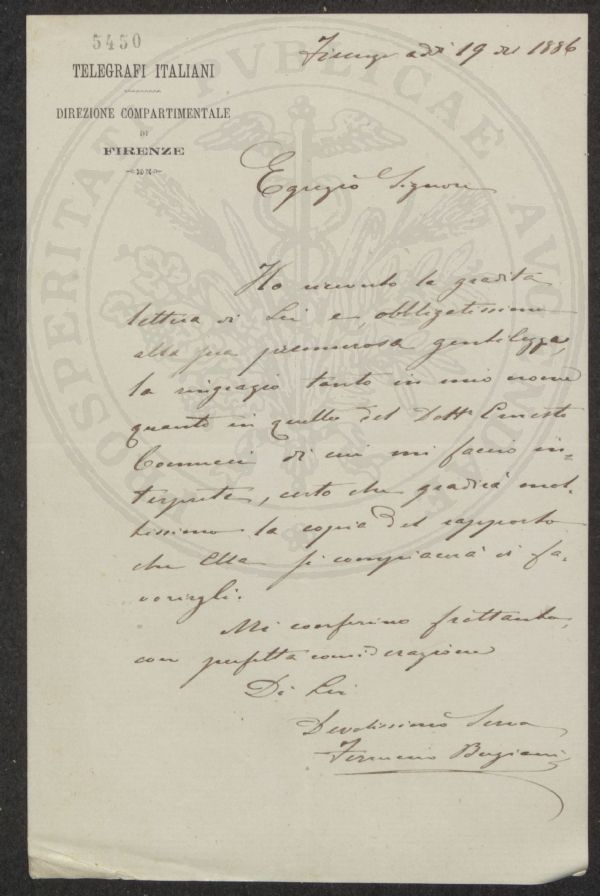 5450
TELEGRAFI ITALIANI
DIREZIONE COMPARTIMENTALE
DI
FIRENZE
Firenze adì 19 1886
Egregio Signore
Ho ricevuto la gradita
lettera di Lei e, obbligatissimo
alla sua premurosa gentilezza,
la ringrazio tanto in mio nome
quanto in quello del Dott. Ernesto
di cui mi faccio in=
terprete, certo che gradirà mol=
tissimo la copia del rapporto
che Ella si compiacerà di fa=
vorirgli.
Mi confermo frattanto,
con perfetta considerazione
Di Lei
Devotissimo Servo
PROSPERITATI PVBLICAE AVGENDAE